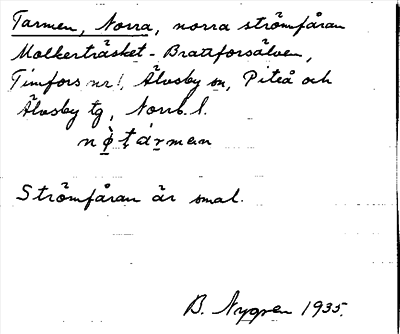 Tarmen, Norra, norra strömfåran
Molkerträsket - Brattforsälven,
Timfors nr 1, Älvsby sn, Piteå och
Älvsby tg, Norrb. l.
Strömfåran är smal.
B. Nygren 1935.